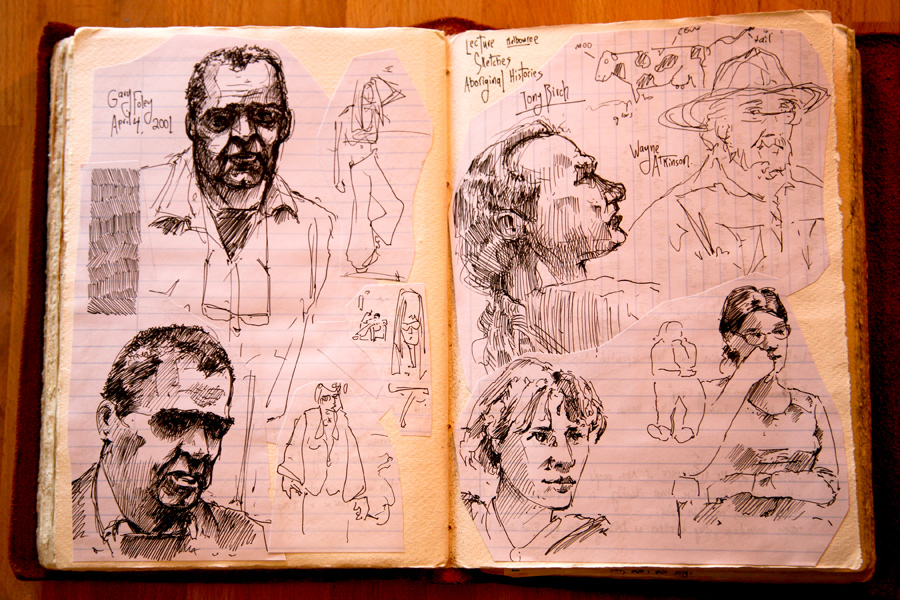 Gary Foley
April 4, 2001
Lecture Melbourne
Sketches
Aboriginal Histories
Tony Birch
MOO
COW
tail
Wayne
Atkinson